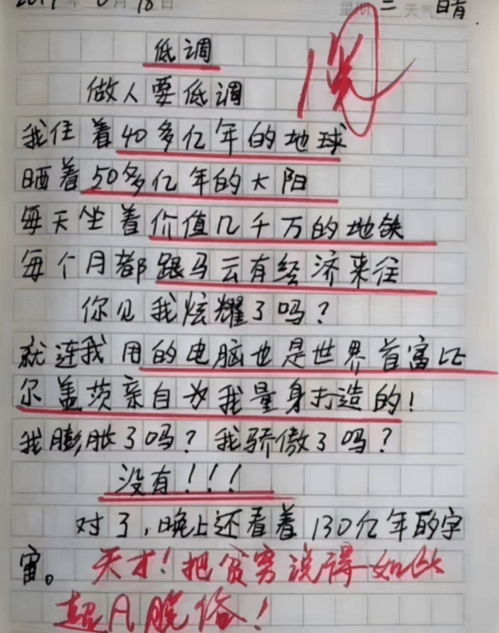 2019年6月18日 星期二 天气 晴
低调
阅
做人要低调
我住着40多亿年的地球
晒着50多亿年的太阳
每天坐着价值几千万的地铁
每个月都跟马云有经济来往
你见我炫耀了吗?
就连我用的电脑也是世界首富比
尔盖茨亲自为我量身打造的!
我膨胀了吗?我骄傲了吗?
没有!!!
对了,晚上还看着130亿年的宇
宙。
天才!把贫穷说得如此
超凡脱俗!